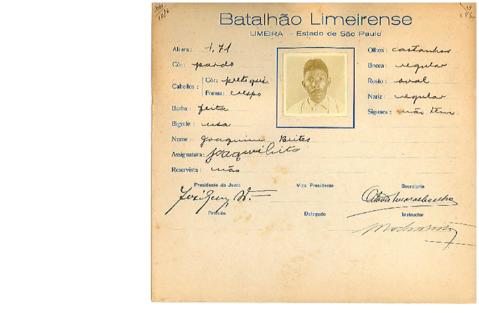 Batalhão Limeirense
LIMEIRA - Estado de São Paulo
Altura: 1,71
Olhos: castanhos
Côr: pardo
Bocca: regular
Cabellos: Côr: preto
Rosto: oval
Forma: crespo
Nariz: regular
Barba: feita
Signaes: não tem
Bigode: usa
Nome: Joaquim Brites
Assignatura:
Reservista: não
Presidente da Junta Vice Presidente Secretario
Prefeito Delegado Instructor